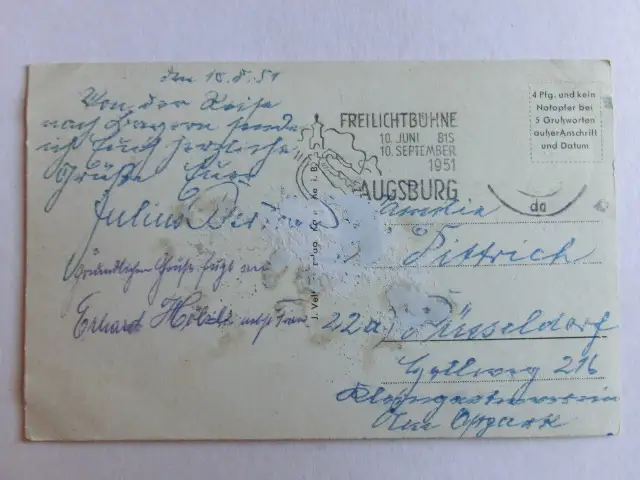 den 18.8.51
Von der Reise
nach Bayern sende
ich Euch herzliche
Grüße Euer
Julius
Freundlichen Gruß fügt
Erhard Hölzl nebst Frau
FREILICHTBÜHNE
10. JUNI BIS
10. SEPTEMBER
1951
AUGSBURG
4 Pfg. und kein
Notopfer bei
5 Grußworten
außer Anschrift
und Datum
da
Familie
Dittrich
22a) Düsseldorf
216
Kleingartenverein
Am Ostpark